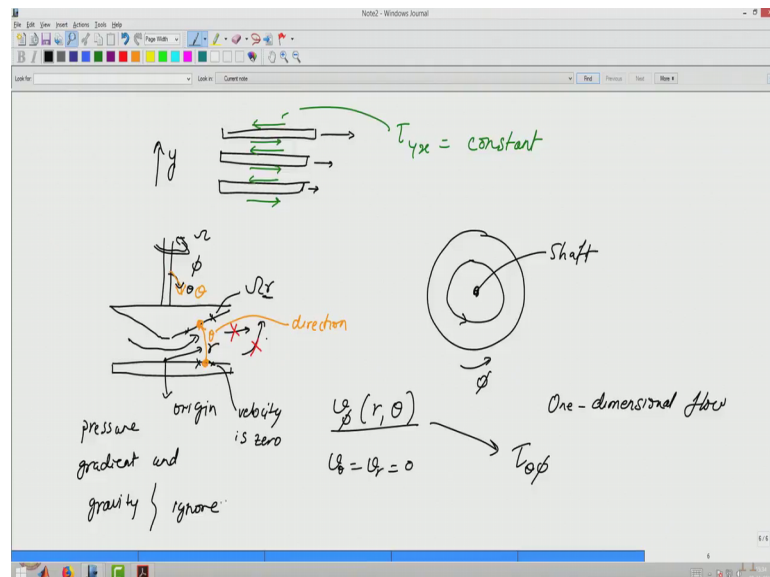 Note2 - Windows Journal
File Edit View Insert Actions Tools Help
Page Width
B I
Look for:
Look in: Current note
Find Previous Next More
y
τyx = constant
Ω
ϕ
θ
Ωr
θ
direction
r
origin
velocity
is zero
pressure
gradient and
gravity } ignore
Shaft
ϕ
vϕ (r, θ)
vθ = vr = 0
One-dimensional flow
τθϕ
6/6
6